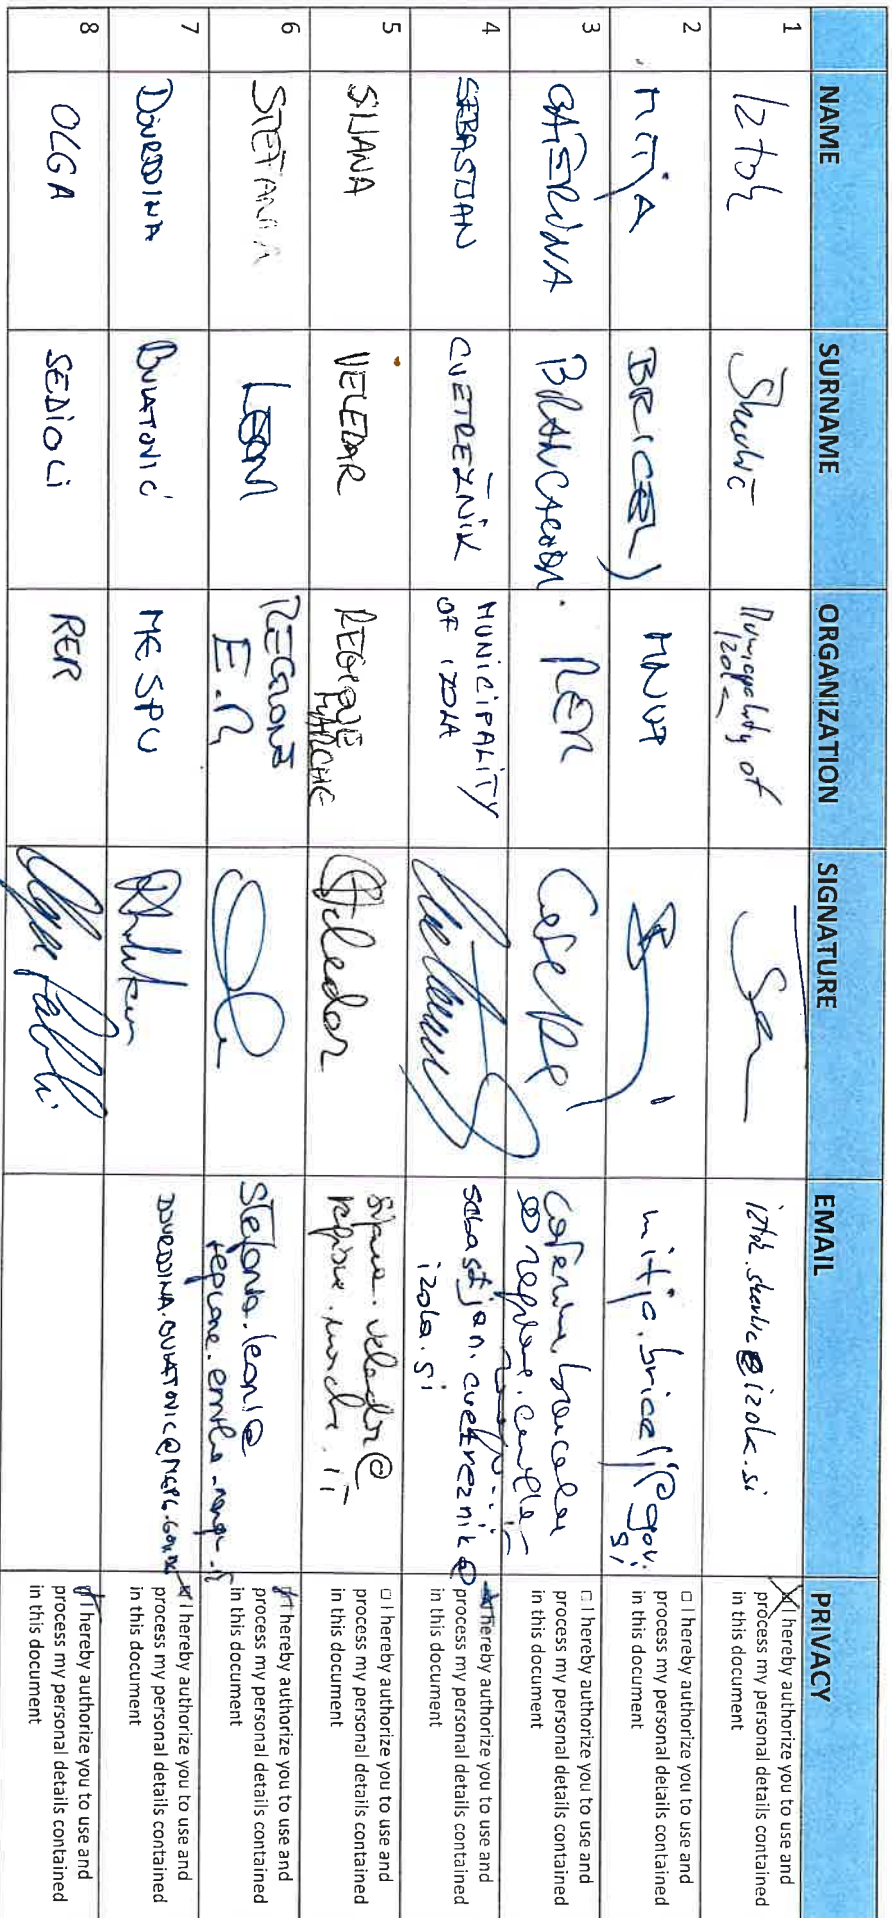 NAME SURNAME ORGANIZATION SIGNATURE EMAIL PRIVACY
1 Iztok Skerlič Municipality of
Izola
iztok.skerlic@izola.si
I hereby authorize you to use and
process my personal details contained
in this document
2 MITJA BRICELJ MNVP mitja.bricelj@gov.
si
□ I hereby authorize you to use and
process my personal details contained
in this document
3 CATERINA RER
□ I hereby authorize you to use and
process my personal details contained
in this document
4 SEBASTJAN CVETREŽNIK MUNICIPALITY
OF IZOLA
sebastjan.cvetreznik@
izola.si
I hereby authorize you to use and
process my personal details contained
in this document
5 SILJANA VELEDAR REGIONE
MARCHE
□ I hereby authorize you to use and
process my personal details contained
in this document
6 STEFANIA LEONI REGIONE
E.R.
Stefania.leoni@
I hereby authorize you to use and
process my personal details contained
in this document
7 BULATOVIĆ ME SPU
I hereby authorize you to use and
process my personal details contained
in this document
8 OLGA SEDIOLI RER
I hereby authorize you to use and
process my personal details contained
in this document